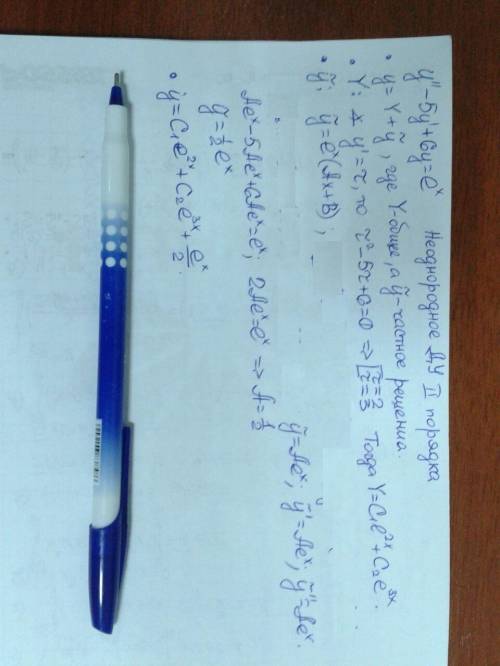 y''-5y'+6y=eˣ Неоднородное ДУ II порядка
• y=Y+ỹ, где Y-общее, а ỹ-частное решения.
• Y: y'=τ, то τ²-5τ+6=0 => [τ=2 τ=3 Тогда Y=C₁e²ˣ+C₂e³ˣ...
• ỹ: ỹ=eˣ(Ax+B);
ỹ=Aeˣ; ỹ'=Aeˣ; ỹ''=Aeˣ.
Aeˣ-5Aeˣ+6Aeˣ=eˣ; 2Aeˣ=eˣ => A=½
ỹ=½eˣ
• y=C₁e²ˣ+C₂e³ˣ+eˣ/2.